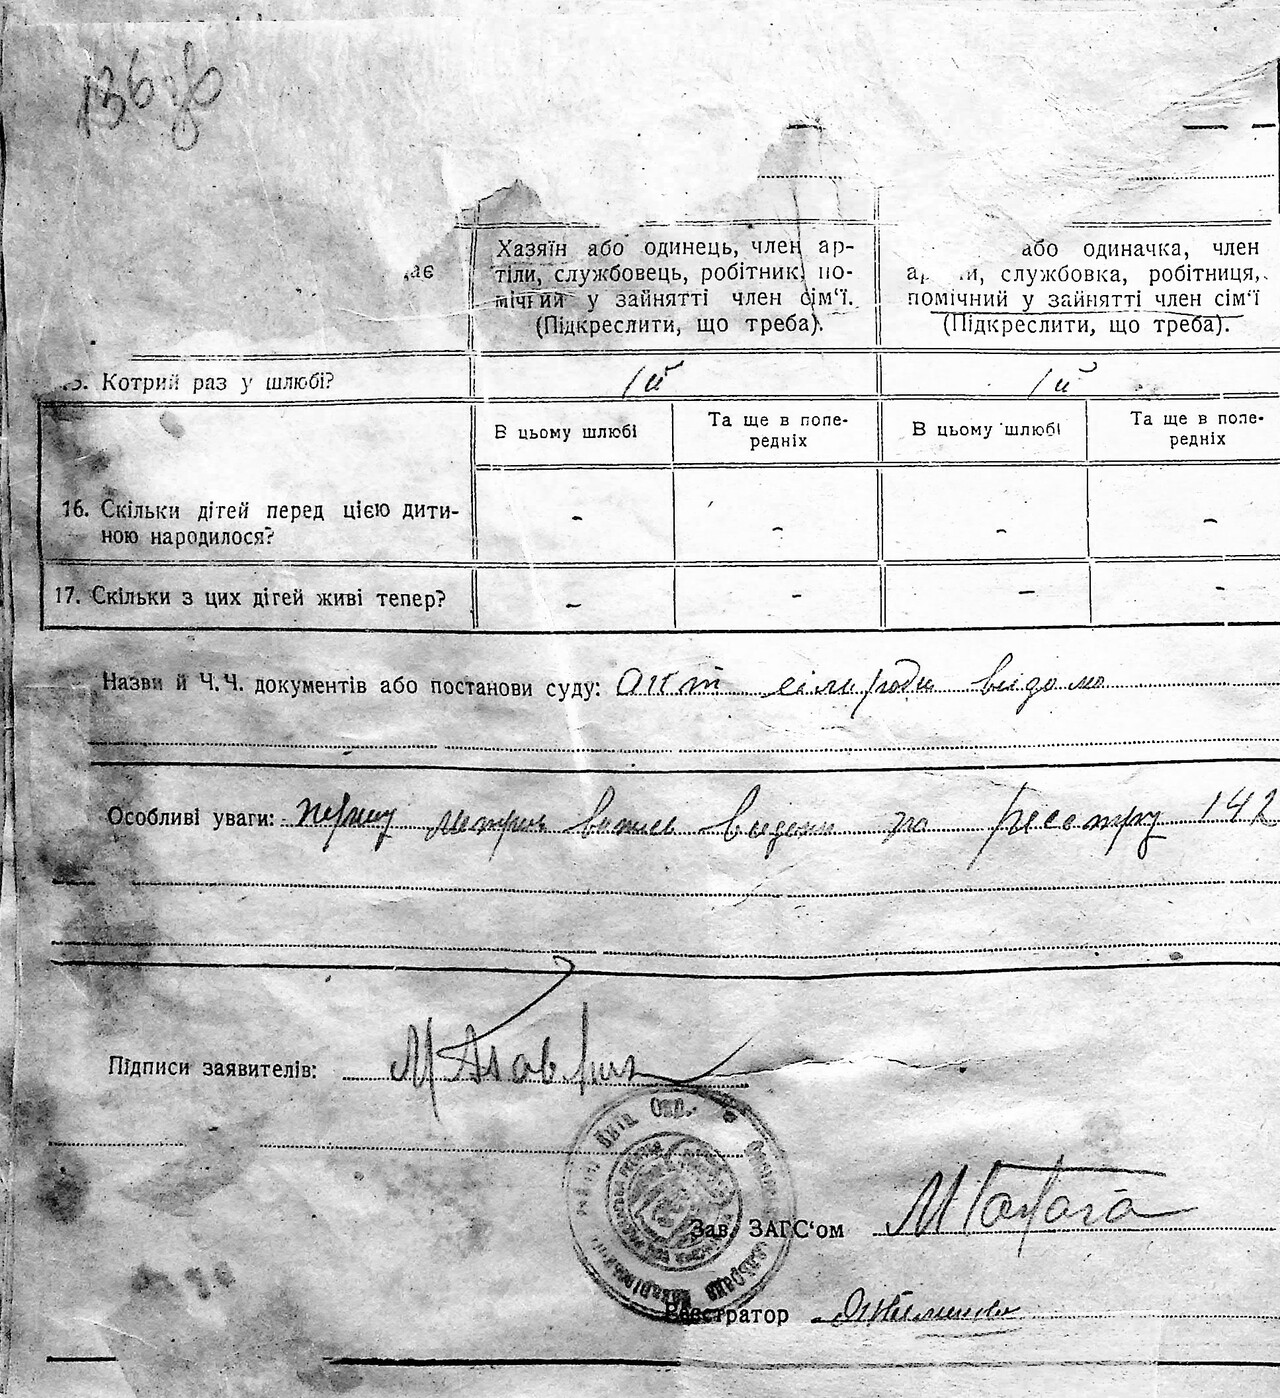 136 зв
Хазяїн або одинець, член ар-
тіли, службовець, робітник, по-
мічний у зайнятті член сім'ї.
(Підкреслити, що треба).
або одиначка, член
службовка, робітниця,
помічний у зайнятті член сім'ї
(Підкреслити, що треба).
Котрий раз у шлюбі? 1й 1й
В цьому шлюбі
Та ще в попе-
редніх
В цьому шлюбі
Та ще в попе-
редніх
16. Скільки дітей перед цією дити-
ною народилося? - - - -
17. Скільки з цих дітей живі тепер? - - - -
Назви й Ч.Ч. документів або постанови суду: Акт сільради видомо
Особливі уваги: першу видано по реєстру 142
Підписи заявителів:
Зав. ЗАГС'ом
Реєстратор